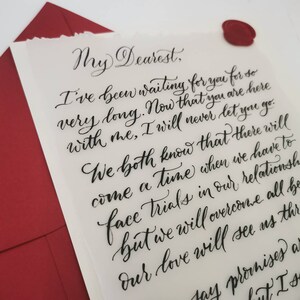 My Dearest,
I've been waiting for you for so
very long. Now that you are here
with me, I will never let you go.
We both know that there will
come a time when we have to
face trials in our relationsh
but we will overcome all be
our love will see us thr
say promises a
t I s